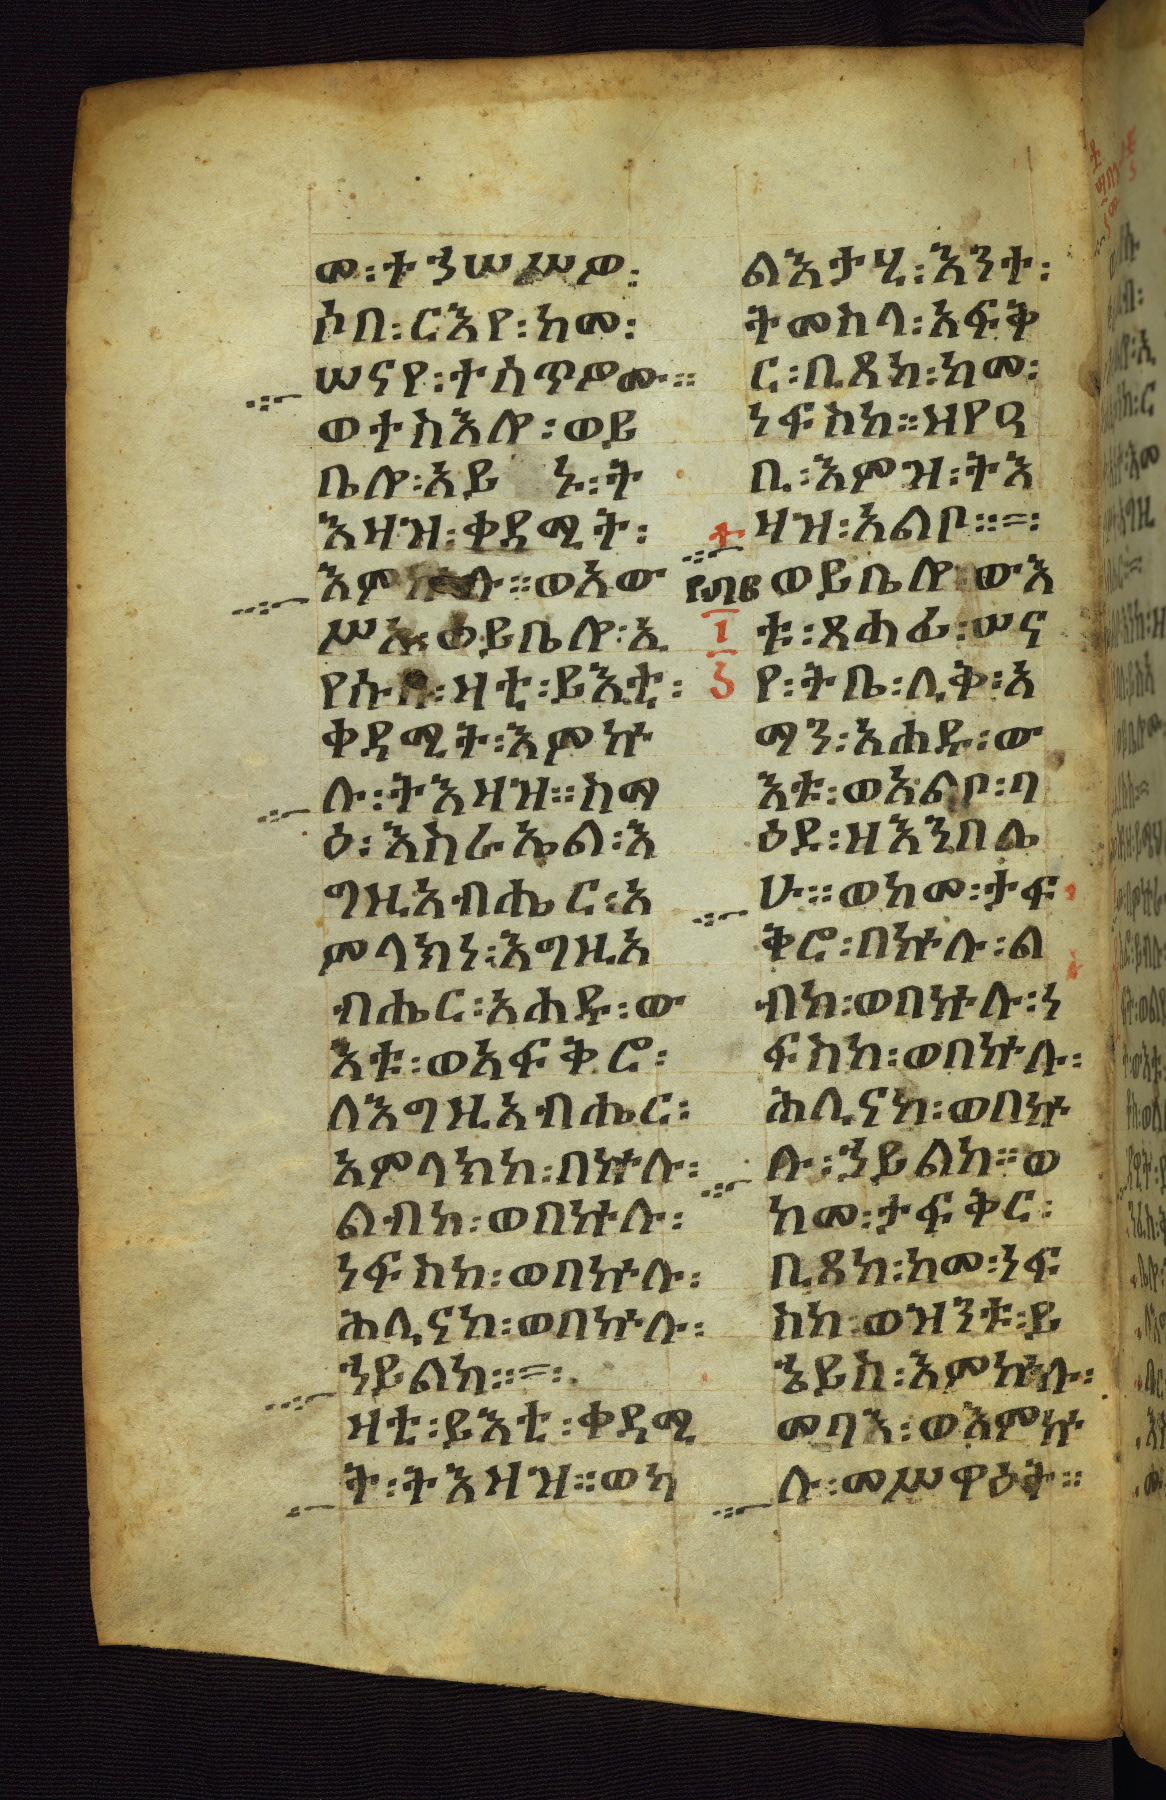 መ፡ተኃሠሥዎ፡
ሶበ፡ርእየ፡ከመ፡
ሠናየ፡ተሰጥዎሙ።
ወተስእሎ፡ወይ
ቤሎ፡አይ ኑ፡ት
እዛዝ፡ቀዳሚት፡
እምኵሉ።ወአው
ሥአ፡ወይቤሎ፡ኢ
የሱስ፡ዛቲ፡ይእቲ፡
ቀዳሚት፡እምኵ
ሉ፡ትእዛዝ።ስማ
ዕ፡እስራኤል፡እ
ግዚአብሔር፡አ
ምላክነ፡እግዚአ
ብሔር፡አሐዱ፡ው
እቱ፡ወአፍቅሮ፡
ለእግዚአብሔር፡
አምላክከ፡በኵሉ፡
ልብከ፡ወበኵሉ፡
ነፍስከ፡ወበኵሉ፡
ሕሊናከ፡ወበኵሉ፡
ኃይልከ።=፡
ዛቲ፡ይእቲ፡ቀዳሚ
ት፡ትእዛዝ።ወካ
ልእታሂ፡እንተ፡
ትመስላ፡አፍቅ
ር፡ቢጸከ፡ከመ፡
ነፍስከ።ዘየዓ
ቢ፡እምዝ፡ትእ
ዛዝ፡አልቦ።=፡
ወይቤሎ፡ውእ
ቱ፡ጸሐፊ፡ሠና
የ፡ትቤ፡ሊቅ፡አ
ማን፡አሐዱ፡ው
እቱ፡ወአልቦ፡ባ
ዕደ፡ዘእንበሌ
ሁ።ወከመ፡ታፍ
ቅሮ፡በኵሉ፡ል
ብከ፡ወበኵሉ፡ነ
ፍስከ፡ወበኵሉ፡
ሕሊናከ፡ወበኵ
ሉ፡ኃይልከ።ወ
ከመ፡ታፍቅር፡
ቢጸከ፡ከመ፡ነፍ
ስከ፡ወዝንቱ፡ይ
ኄይስ፡እምኵሉ፡
መባእ፡ወእምኵ
ሉ፡መሥዋዕት።